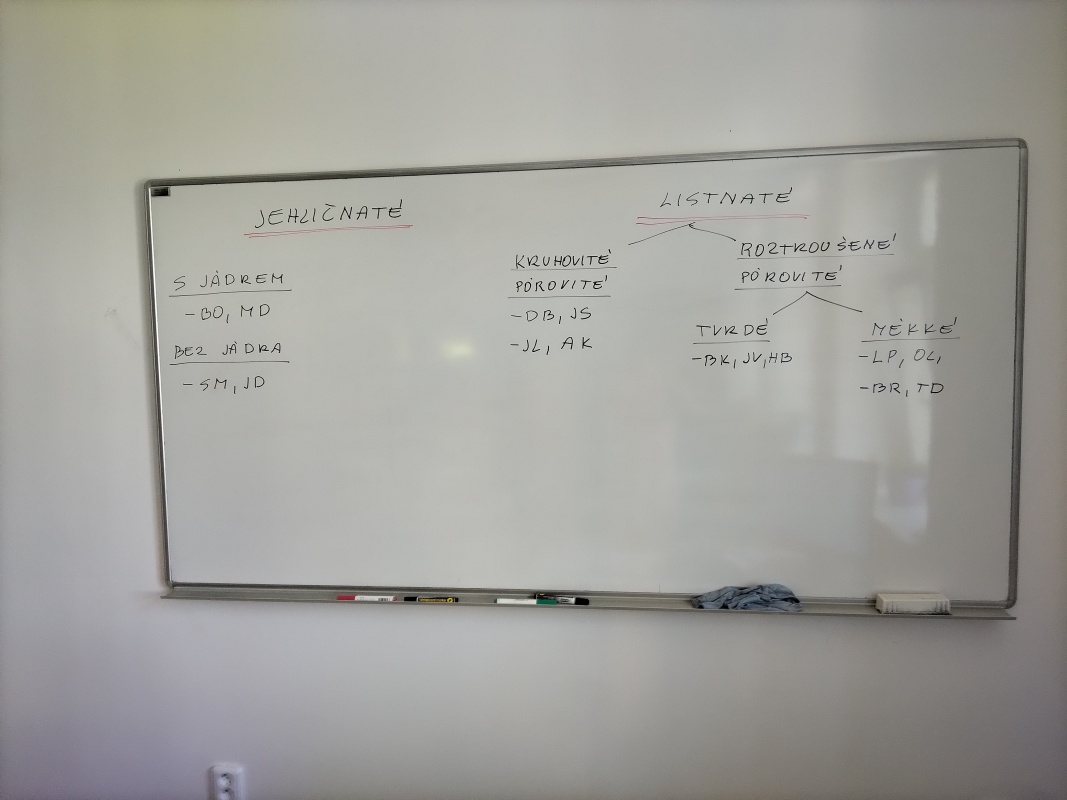 JEHLIČNATÉ
S JÁDREM
-BO, MD
BEZ JÁDRA
-SM, JD
LISTNATÉ
KRUHOVITÉ
PÓROVITÉ
-DB, JS
-JL, AK
ROZTROUŠENÉ
PÓROVITÉ
TVRDÉ
-BK, JV, HB
MĚKKÉ
-LP, OL,
-BR, TD